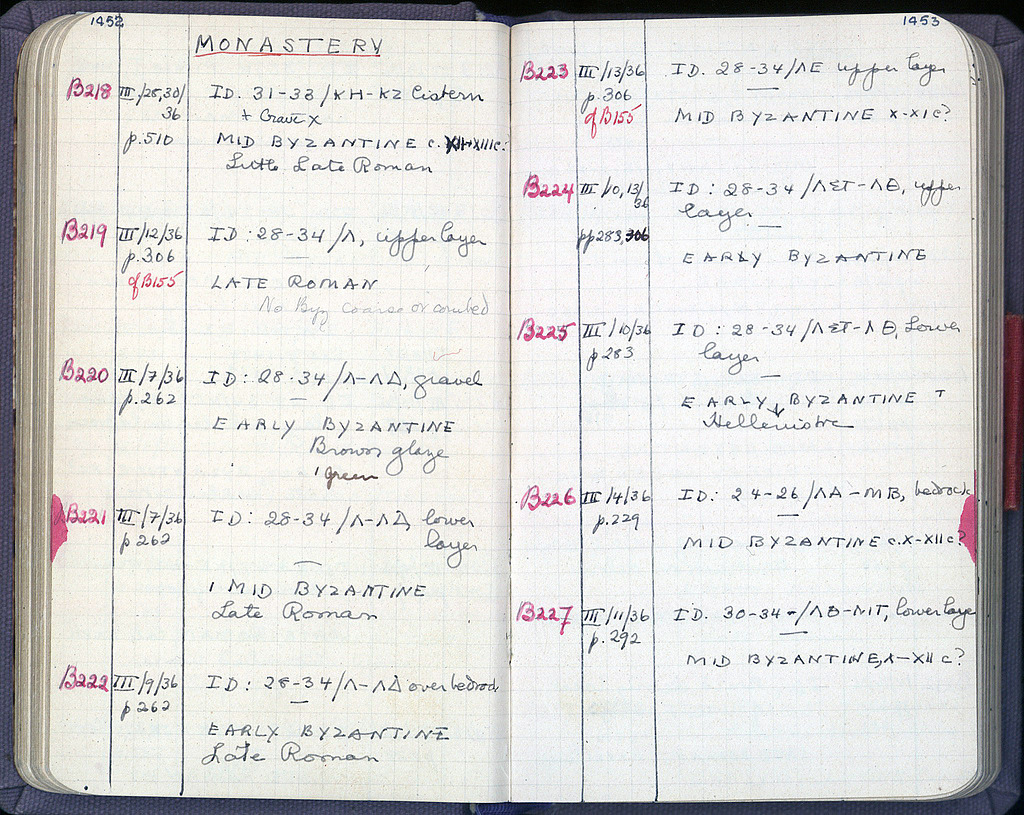 1452
MONASTERY
B218 III/25,30/ ID. 31-33/KH-KZ Cistern
36 + Grave X
p.510 MID BYZANTINE c. XIIIc?
Late Roman
B219 III/12/36 ID: 28-34/Λ, upper layer
p.306
cf B155 LATE ROMAN
No Byz coarse or combed
B220 III/7/36 ID: 28-34/Λ-ΛΔ, gravel
p.262
EARLY BYZANTINE
Brown glaze
1 green
B221 III/7/36 ID: 28-34/Λ-ΛΔ, lower
p 262 layer
1 MID BYZANTINE
Late Roman
B222 III/9/36 ID: 28-34/Λ-ΛΔ over bedrock
p 262
EARLY BYZANTINE
Late Roman
1453
B223 III/13/36 ID. 28-34/ΛE upper layer
p.306
cf B155 MID BYZANTINE X-XI c?
B224 III/10,13/ ID: 28-34/ΛΣT-ΛΘ, upper
36 layer
pp 283, 306
EARLY BYZANTINE
B225 III/10/36 ID: 28-34/ΛΣT-ΛΘ, Lower
p 283 layer
EARLY BYZANTINE
Hellenistic
B226 III/4/36 ID: 24-26/ΛA-MB, bedrock
p.229
MID BYZANTINE c.X-XII c?
B227 III/11/36 ID. 30-34/ΛΘ-MT, lower layer
p.292
MID BYZANTINE, X-XII c?